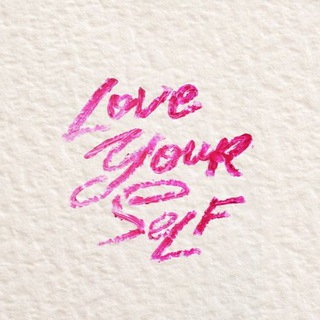 Love
YOUR
SeLF